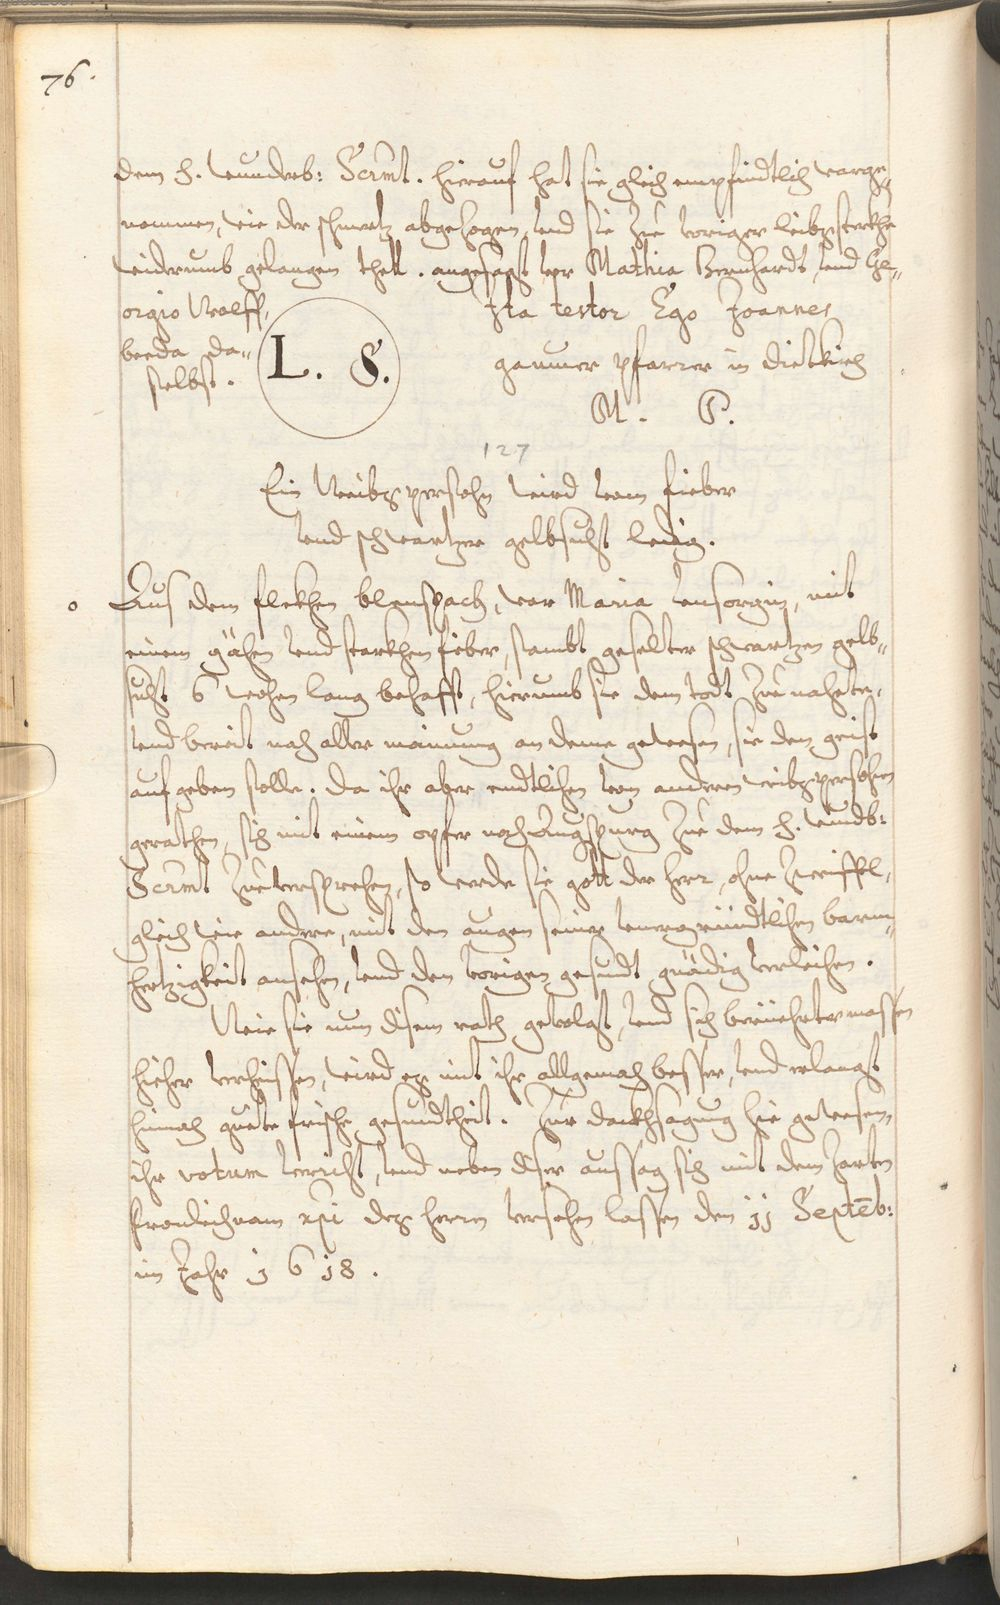 76.
dem H. wunderb: Scrmt. hierauf hat sie gleich empfindtlich warge„
nommen, wie der schmertz abgezogen, vnd sie zue voriger leibßsterkhe
widerumb gelangen thett. angesagt vor Mathia Bernhardt vnd Ge„
orgio Wolff,
beeda da„
selbst.
L. S.
Ita testor Ego Joannes
gaumer pfarrer in dietkirch
M. P.
127
Ein Weibßpersohn wird vom fieber
vnd schwartzer gelbsucht ledig.
Aus dem flekhen blenspach, war Maria vnsorgin, mit
einem gähen vnd starkhen fieber, sambt geselter schwartzen gelb„
sucht 6 wochen lang behafft, hierumb sie dem todt zue nahete,
vnd bereit nach aller mainung an deme gewesen, sie den geist
aufgeben solle. da ihr aber endtlichen von anderen weibßpersohnen
gerathen, sich mit einem opfer nach Augspurg zue dem H. wundb:
Scrmt zueversprechen, so werde sie gott der herr, ohne zweiffel,
gleich wie andere, mit den augen seiner vnergründtlichen barm„
hertzigkeit ansehen, vnd den vorigen gesundt gnädig verleihen.
Wie sie nun disem rath gevolgt, vnd sich berüehrtermassen
hieher verheissen, wird eß mit ihr allgemach besser, vnd erlangt
hinnach guete frische gesundtheit. Zur dankhsagung hie gewesen,
ihr votum vericht, vnd neben diser aussag sich mit dem zarten
fronleichnam xpi deß herrn versehen lassen den jj Septēb:
im Jahr j 6 j8.